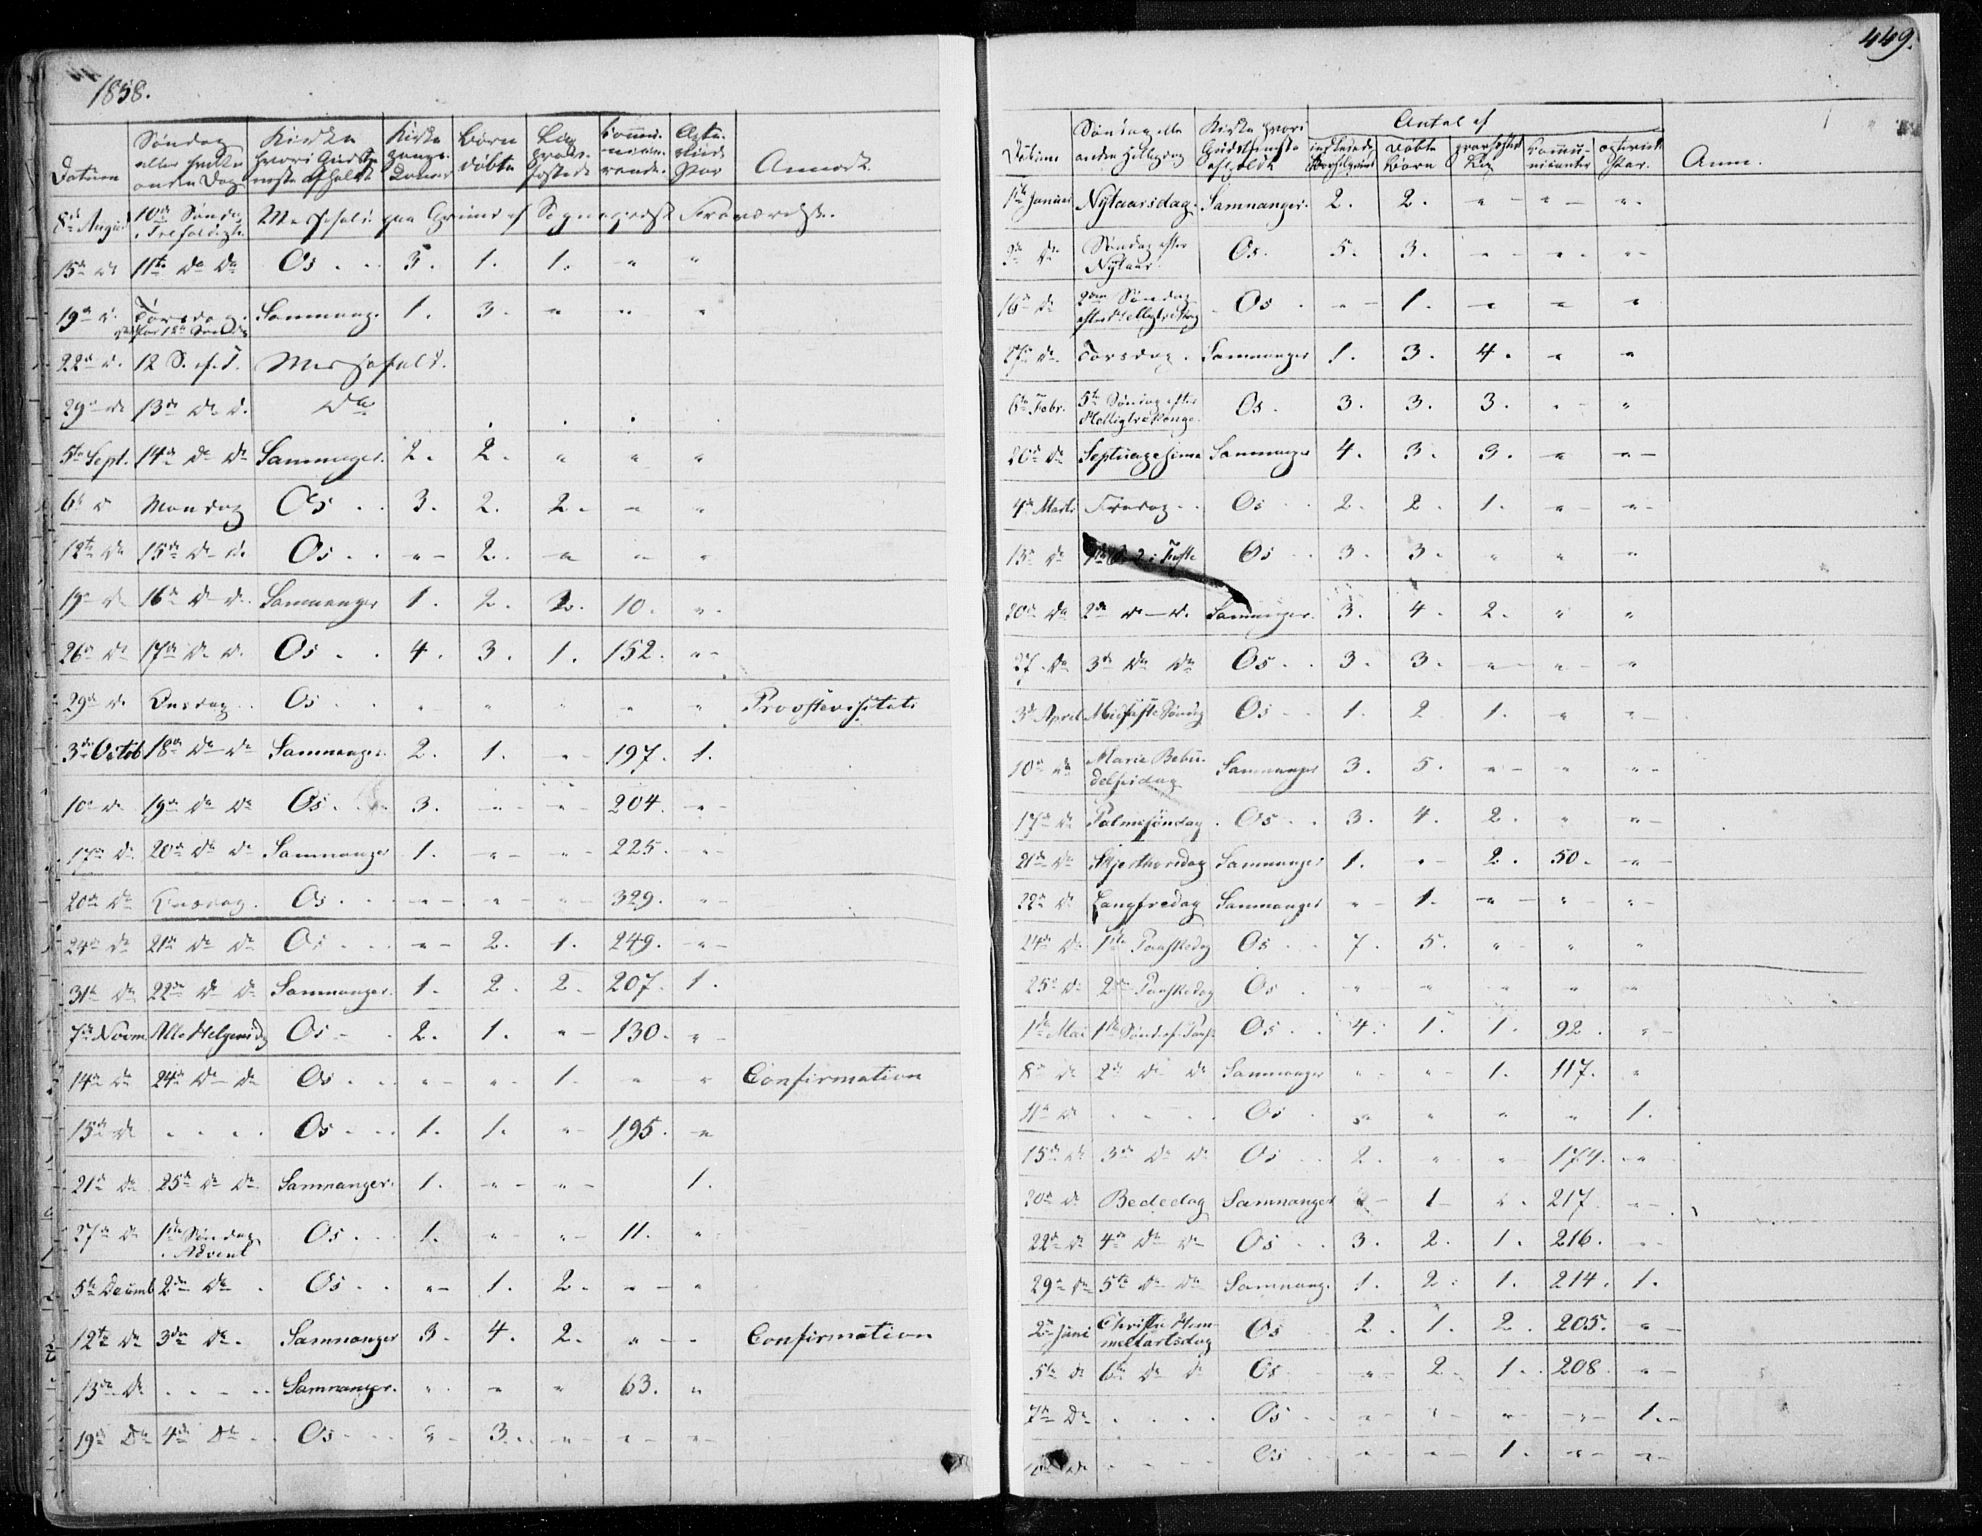 1858.
Datum | Søndag eller hvilken anden Dag | Kirke hvori Gudstjeneste afholdt | Kirke gangs Koner | Børn døbte | Lig | Communicerende | Par | Anmærk.
8de August 10de Søndag Trefoldigh. Messefald paa Grund af Sognepræst Fraværelse.
15de do 11te do do Os 3. 1. 1. " "
19de d. Torsdag Samnang. 1. 3. " " "
22de d. 12 S. e. T. Messefald.
29de do 13de do d. do
5te Sept. 14de do do Samnanger. 2. 2. " " "
6te d Mandag Os 3. 2. 2. " "
12te do 15de do d. Os " 2. " " "
19de d 16de do do Samnanger 1. 2. 2. 10. "
26de do 17de do do Os 4. 3. 1. 152. "
29de do Onsdag Os " " " " " Provstevisitats
3die Octob 18de do do Samnanger. 2. 1. " 197. 1.
10de do 19de do do Os 3. " " 204. "
17de do 20de do do Samnanger 1. " " 225. "
20de do Onsdag. Os " " " 329. "
24de do 21de do do Os " 2. 1. 249. "
31te do 22de do do Samnanger. 1. 2. 2. 207. 1.
7de Novm Alle Helgensdg Os 2. 1. " 130. "
14de do 24de do do Os " " 1. " " Confirmation
15de do . . . . Os 1. 1. " 195. "
21de do 25de do do Samnanger. 1. " " 1.
27de do 1ste Søndag i Advent Os 1. " " 11. "
5te Decemb 2den do Os " 1. 2. " "
12te do 3die do. Samnanger 3. 4. 2. " " Confirmation
13de do . . . . Samnanger. " " " 63. "
19de do 4de do Os 3. " " "
449.
Datum | Søndag eller anden Helligdag | Kirke hvori Gudstjeneste afholdt | Antal af | døbte Børn | Lig | Communicanter | Par. | Anm.
1ste Januar Nytaarsdag. Samnanger. 2. 2. " " "
9de do Søndag efter Nytaar Os. 5. 3. " " "
16de do 2den Søndag efter Helligtrekong Os " 1. " " "
do Torsdag. Samnanger 1. 3. 4. " "
6te Febr. 5te Søndag efter Helligtrekonge Os. 3. 3. 3. " "
20de do Septuagesima Samnanger 4. 3. 3. " "
4de Marts Fredag Os 2. 2. 1. " "
13de do i Faste Os 3. 3. " " "
20de do 2den do Samnanger. 3. 4. 2. " "
27. do 3die do do Os 3. 3. " " "
3die April Midfaste Søndag Os 1. 2 1. " "
10de do Marie Bebudelsesdag Samnanger 3. 5. " " "
17de do Palmesøndag. Os 3. 4. 2. " "
21de do Skjerthorsdag Samnanger 1. " 2. 50. "
22de do Langfredag Samnanger " 1. " " "
24de do 1ste Paaskedag Os 7. 5. " " "
25de do 2den Paaskedag Os " " " " "
1ste Mai 1ste Sønd. ef. Paas. Os 4. 1. 1. 92. "
8de do 2den do do Samnanger " " 1. 117. "
11te do . . . . Os " " " " 1.
15de do 3die do do Os 2. " " 174. "
20de do Bededag Samnanger " 1 " 217. "
22de do 4de do do Os 3. 2. 1. 216. "
29de do 5te do do Samnang. 1. 2. 1. 214. 1.
2den Juni Christi Himmelfartsdag Os 2. 1. 2. 205. "
5te do 6te do do Os " 2. 1. 208. "
7de do . . . . Os " " " " 1.
do . . . . Os " " 1. " "